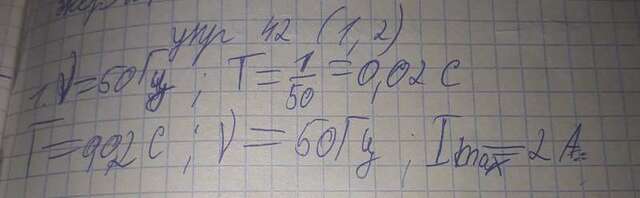 упр 42 (1,2)
1. ν=50Гц ; T=1/50=0,02 С
T=0,02 С ; ν=50Гц ; Imax=2 А